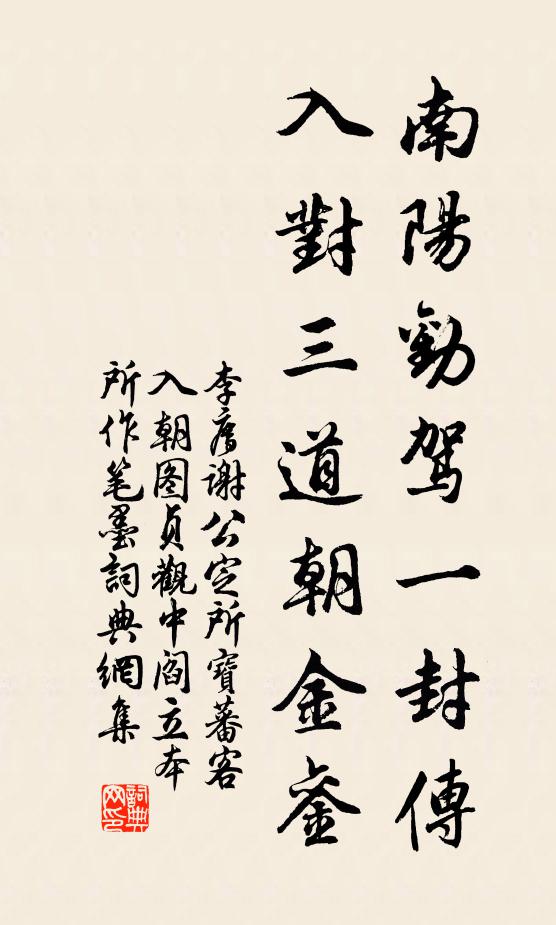 南陽勸駕一封傳
入對三道朝金鑾
李廌謝公定所寶蕃客
入朝图貞觀中阎立本
所作笔墨詞典網集
詞典
网印